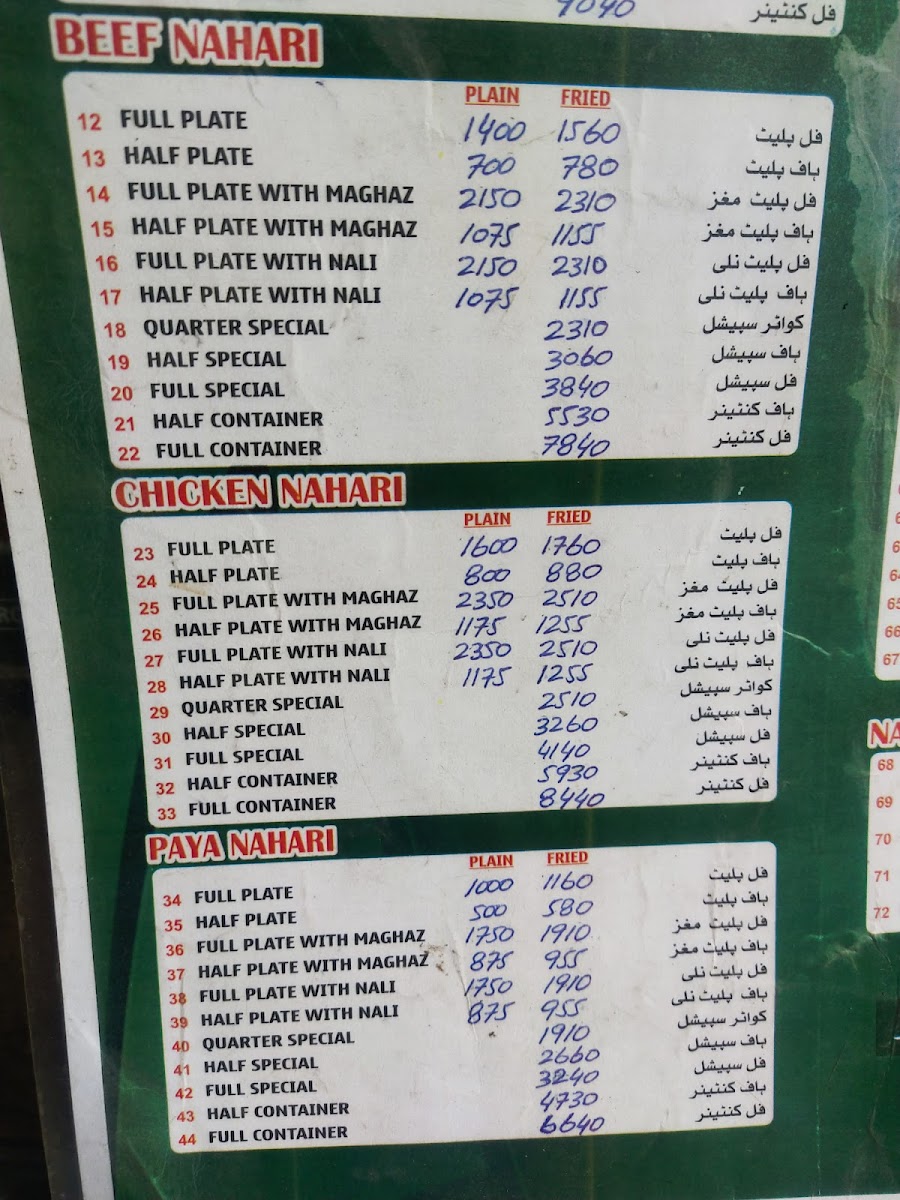 9040 فل کنٹینر
BEEF NAHARI
PLAIN FRIED
12 FULL PLATE 1400 1560 فل پلیٹ
13 HALF PLATE 700 780 ہاف پلیٹ
14 FULL PLATE WITH MAGHAZ 2150 2310 فل پلیٹ مغز
15 HALF PLATE WITH MAGHAZ 1075 1155 ہاف پلیٹ مغز
16 FULL PLATE WITH NALI 2150 2310 فل پلیٹ نلی
17 HALF PLATE WITH NALI 1075 1155 ہاف پلیٹ نلی
18 QUARTER SPECIAL 2310 کواٹر سپیشل
19 HALF SPECIAL 3060 ہاف سپیشل
20 FULL SPECIAL 3840 فل سپیشل
21 HALF CONTAINER 5530 ہاف کنٹینر
22 FULL CONTAINER 7840 فل کنٹینر
CHICKEN NAHARI
PLAIN FRIED
23 FULL PLATE 1600 1760 فل پلیٹ
24 HALF PLATE 800 880 ہاف پلیٹ
25 FULL PLATE WITH MAGHAZ 2350 2510 فل پلیٹ مغز
26 HALF PLATE WITH MAGHAZ 1175 1255 ہاف پلیٹ مغز
27 FULL PLATE WITH NALI 2350 2510 فل پلیٹ نلی
28 HALF PLATE WITH NALI 1175 1255 ہاف پلیٹ نلی
29 QUARTER SPECIAL 2510 کواٹر سپیشل
30 HALF SPECIAL 3260 ہاف سپیشل
31 FULL SPECIAL 4140 فل سپیشل
32 HALF CONTAINER 5930 ہاف کنٹینر
33 FULL CONTAINER 8440 فل کنٹینر
PAYA NAHARI
PLAIN FRIED
34 FULL PLATE 1000 1160 فل پلیٹ
35 HALF PLATE 500 580 ہاف پلیٹ
36 FULL PLATE WITH MAGHAZ 1750 1910 فل پلیٹ مغز
37 HALF PLATE WITH MAGHAZ 875 955 ہاف پلیٹ مغز
38 FULL PLATE WITH NALI 1750 1910 فل پلیٹ نلی
39 HALF PLATE WITH NALI 875 955 ہاف پلیٹ نلی
40 QUARTER SPECIAL 1910 کواٹر سپیشل
41 HALF SPECIAL 2660 ہاف سپیشل
42 FULL SPECIAL 3240 فل سپیشل
43 HALF CONTAINER 4730 ہاف کنٹینر
44 FULL CONTAINER 6640 فل کنٹینر
65
66
67
NA
68
69
70
71
72